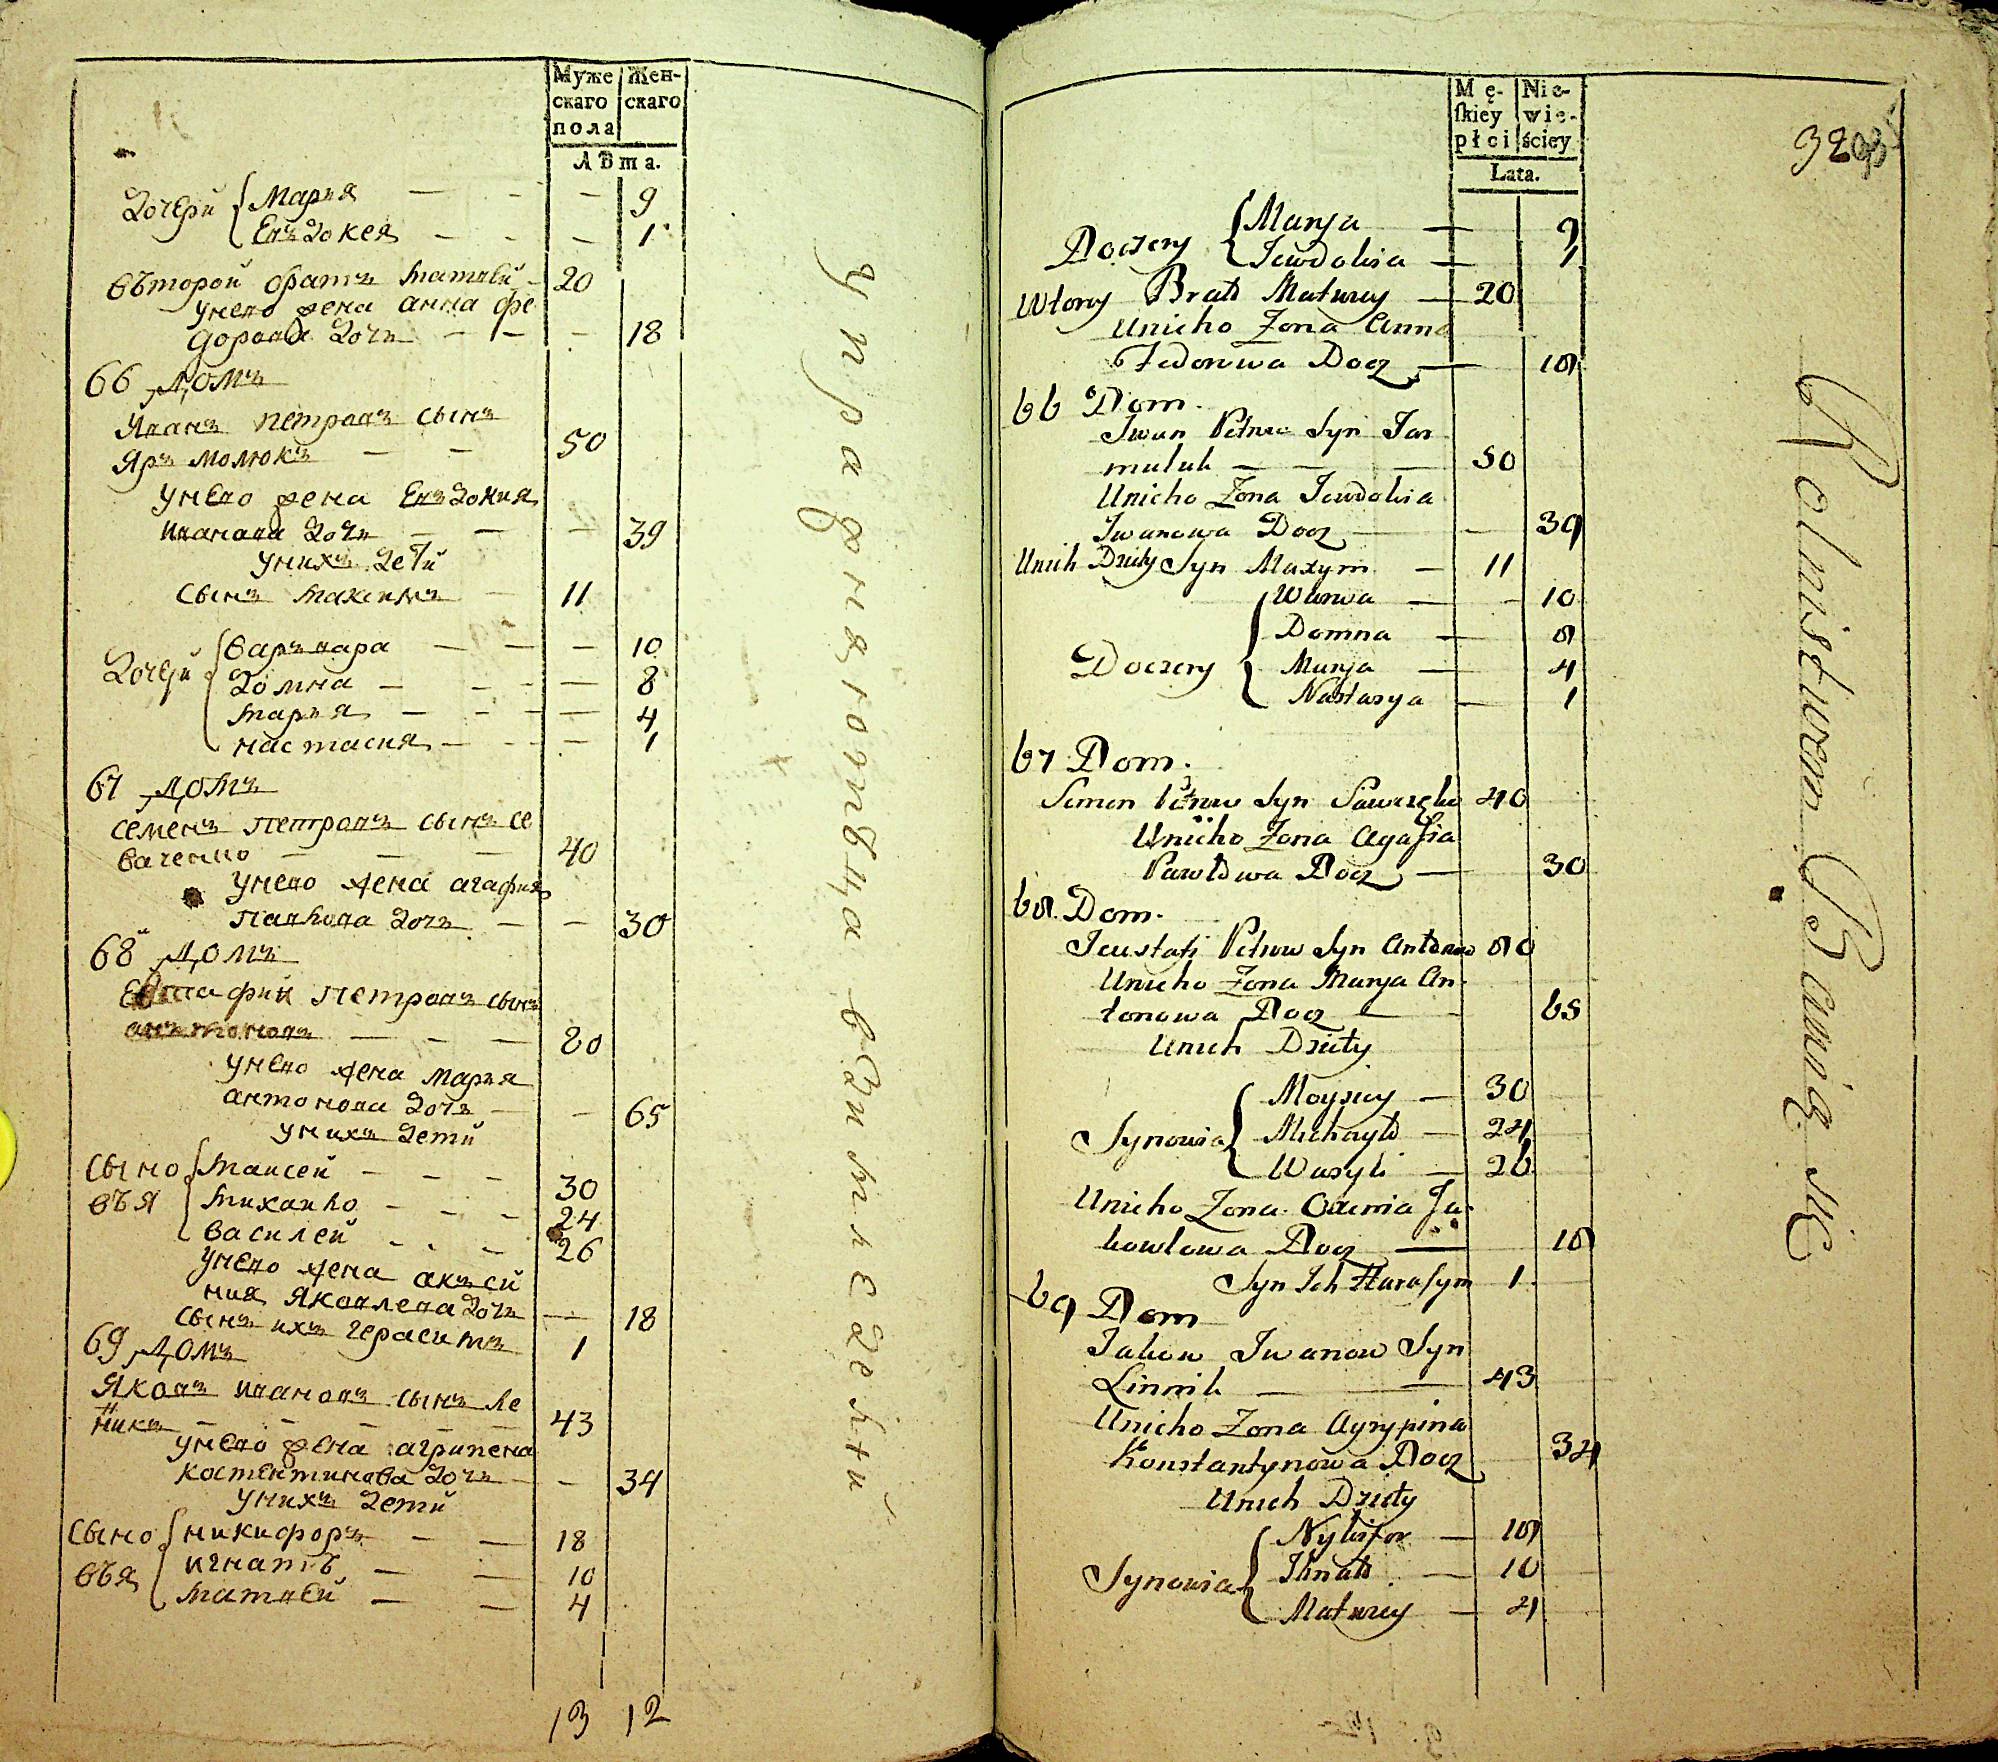 Муже
скаго
пола
Жен-
скаго
Лѣта.
дочери Марья — 9
Евъдокея — 1
въторой братъ матвѣй 20
унево жена анна фе
дорова дочь — 18
66 домъ
Иванъ петровъ сынъ
Яръмолюкъ — 50
унево жена Евъдокия
иванова дочь — 39
унихъ дети
сынъ максимъ — 11
дочери варъвара — 10
домна — 8
марья — 4
настасия — 1
67 домъ
семенъ петровъ сынъ се
ваченко — 40
унево жена агафия
павлова дочь — 30
68 домъ
Евтафий петровъ сынъ
антоновъ — 80
унево жена марья
антонова дочь — 65
унихъ дети
сыно маисей — 30
въя михаило — 24
василей — 26
унево жена акъси
ния яковлева дочь — 18
сынъ ихъ герасимъ 1
69 домъ
Яковъ ивановъ сынъ ле
никъ — 43
унево жена агрипена
костентинова дочь — 34
унихъ дети
сыно никифоръ — 18
въя игнатъ — 10
матвѣй — 4
13 12
управния готовица вдимие дети
Mę-
skiey
płci
Nie-
wie-
ściey
Lata.
Doczery Marya — 9
Jewdokia — 1
Wtory Brat Matwey — 20
Unieho Zona Anna
Fedorowa Docz — 18
66 Dom.
Iwan Petrow Syn Jar
muluk — 50
Unieho Zona Jewdokia
Iwanowa Docz — 39
Unich Dziéty Syn Maxym — 11
Warwa — 10
Domna — 8
Doczery Marya — 4
Nastasya — 1
67 Dom.
Semen Petrow Syn Sawczęko 40
Unieho Zona Agafia
Pawłowa Docz — 30
68. Dom.
Jeustafi Petrow Syn Antonow 80
Unieho Zona Marya An-
tonowa Docz — 65
Unich Dziéty
Moysiey — 30
Synowia Michayło — 24
Wasyli — 26
Unieho Zona Oxenia Ja-
kowlowa Docz — 18
Syn Ich Harasym 1
69 Dom
Jakow Iwanow Syn
Linnik — 43
Unieho Zona Agrypina
Konstantynowa Docz 34
Unich Dziéty
Nykifor — 18
Synowia Ihnat — 10
Matwey — 4